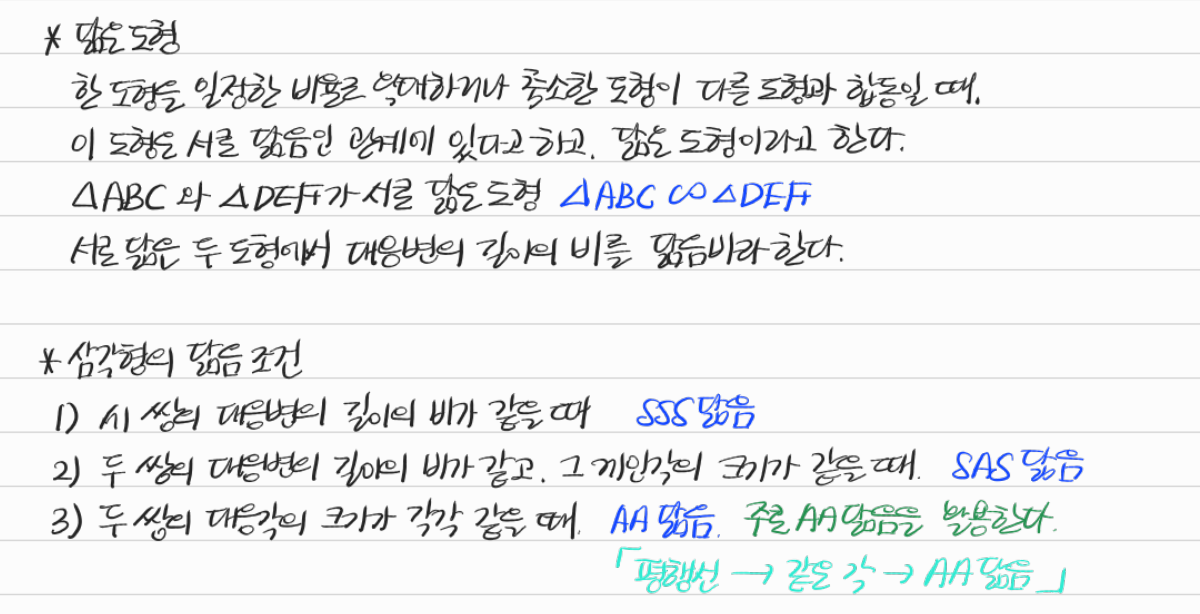 * 닮은 도형
한 도형을 일정한 비율로 확대하거나 축소한 도형이 다른 도형과 합동일 때,
이 도형은 서로 닮음인 관계에 있다고 하고, 닮은 도형이라고 한다.
△ABC 와 △DEF가 서로 닮은 도형 △ABC ∽ △DEF
서로 닮은 두 도형에서 대응변의 길이의 비를 닮음비라 한다.
* 삼각형의 닮음 조건
1) 세 쌍의 대응변의 길이의 비가 같을 때 SSS 닮음
2) 두 쌍의 대응변의 길이의 비가 같고, 그 끼인각의 크기가 같을 때. SAS 닮음
3) 두 쌍의 대응각의 크기가 각각 같을 때. AA 닮음. 주로 AA 닮음을 활용한다.
「평행선 → 같은 각 → AA 닮음」